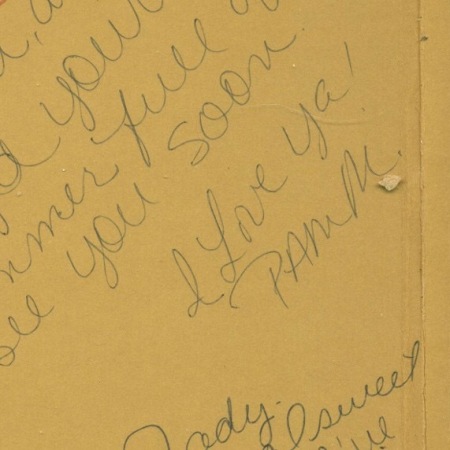 your
summer full of
see you soon.
I Love Ya!
PAM M.
Jody.
sweet